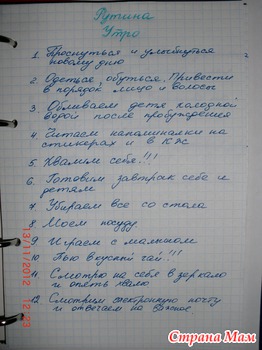 Рутина
Утро
1. Проснуться и улыбнуться
новому дню
2. Одеться, обуться. Привести
в порядок лицо и волосы
3. Обливаем детя холодной
водой после пробуждения
4. Читаем напоминалки на
стикерах и в КЖ
5. Хвалим себя!!!
6. Готовим завтрак себе и
детям
7. Убираем все со стола
8. Моем посуду
9. Играем с малышом
10. Пью вкусный чай!!!
11. Смотрю на себя в зеркало
и опять хвалю
12. Смотрим электронную почту
и отвечаем на важное
13/11/2012 12:23
Страна Мам